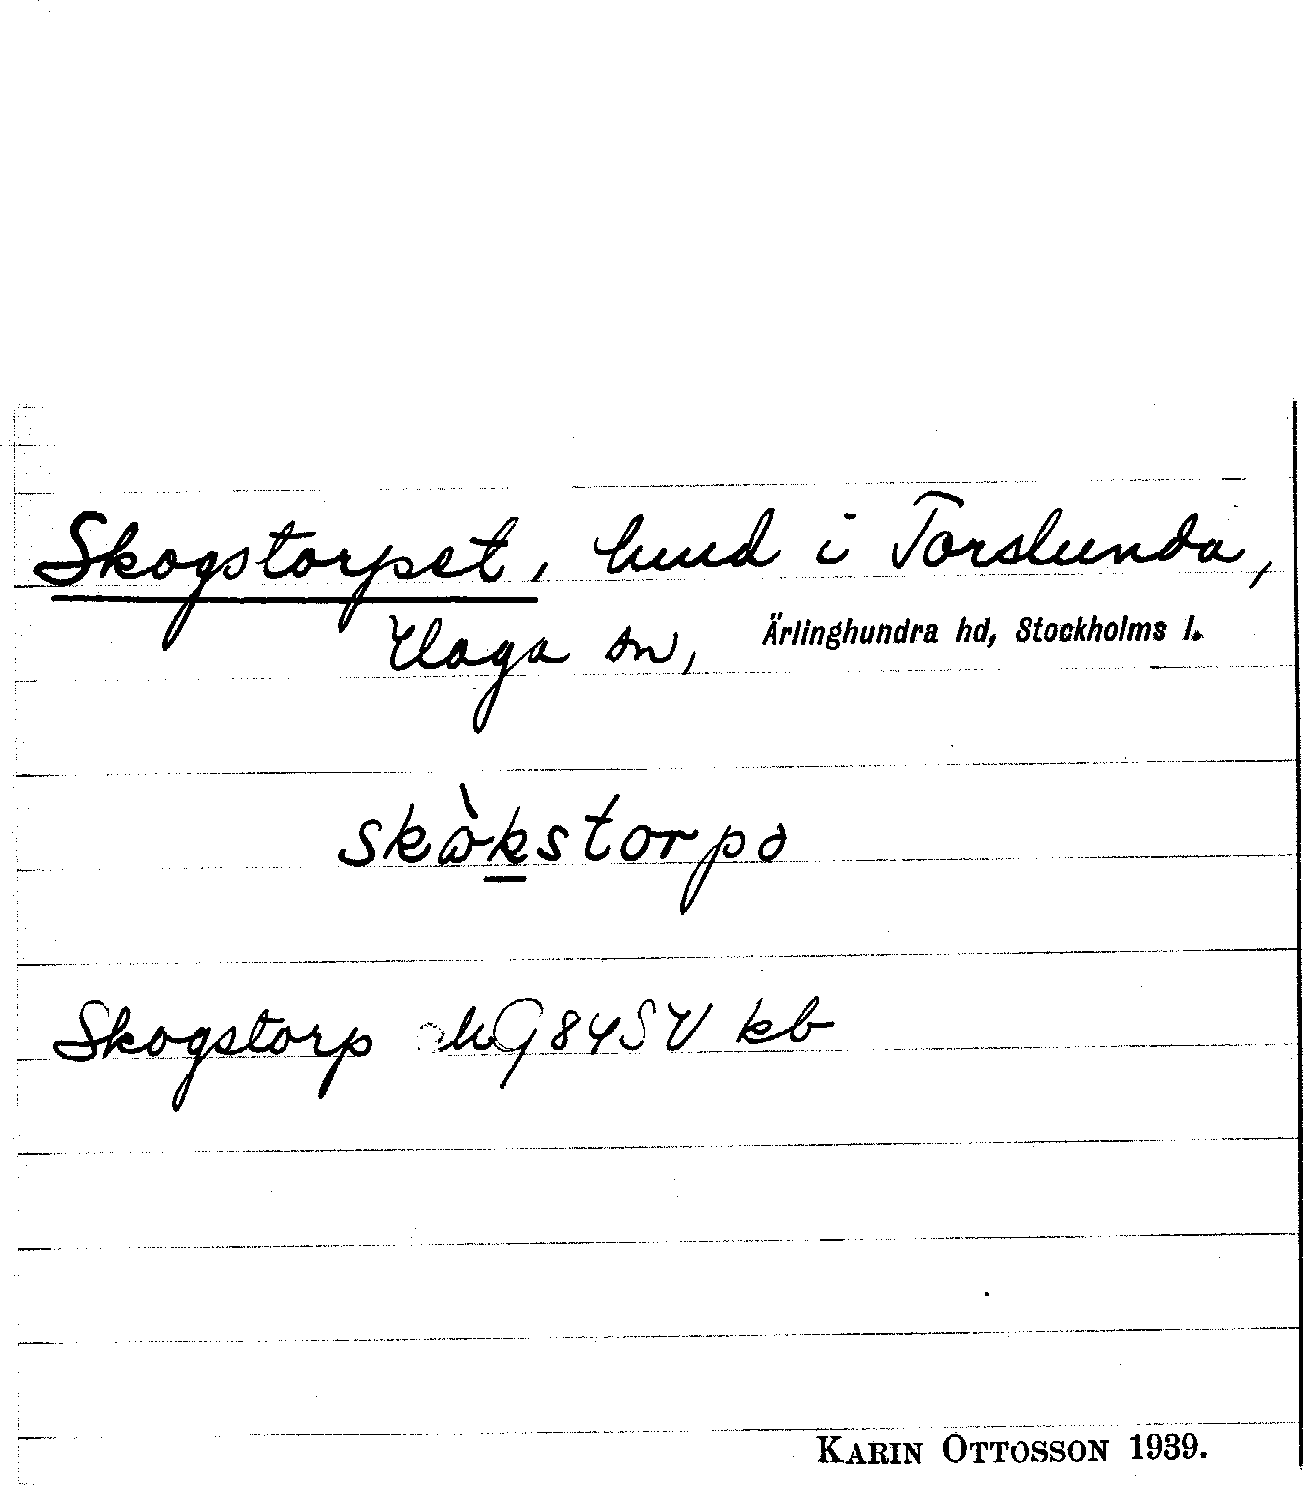 Skogstorpet, i Torslunda,
Haga sn, Ärlinghundra hd, Stockholms l.
skɷ̀kstorpə
Skogstorp 84SV kb
KARIN OTTOSSON 1939.